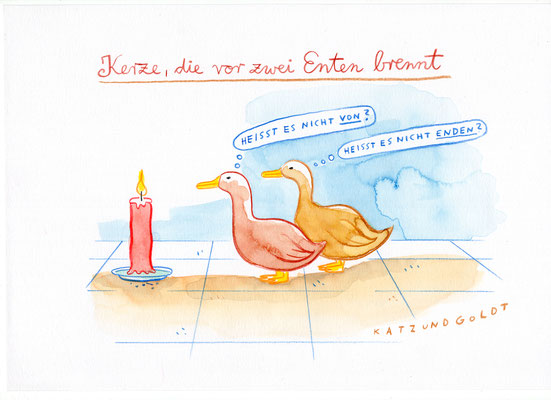 Kerze, die vor zwei Enten brennt
HEISST ES NICHT VON?
HEISST ES NICHT ENDEN?
KATZUNDGOLDT